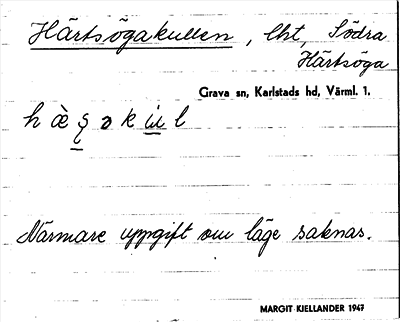 Härtsögakullen, lht, Södra
Härtsöga
Grava sn, Karlstads hd, Värml. l.
Närmare uppgift om läge saknas.
MARGIT KJELLANDER 1947